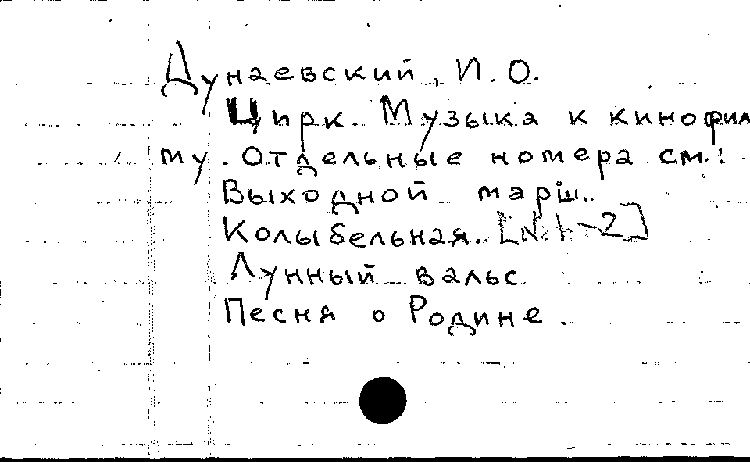 Дунаевский, И.О.
Цирк. Музыка к кинофиль
му. Отдельные номера см.:
Выходной марш.
Колыбельная. [N.1-2]
Лунный вальс
Песня о Родине.